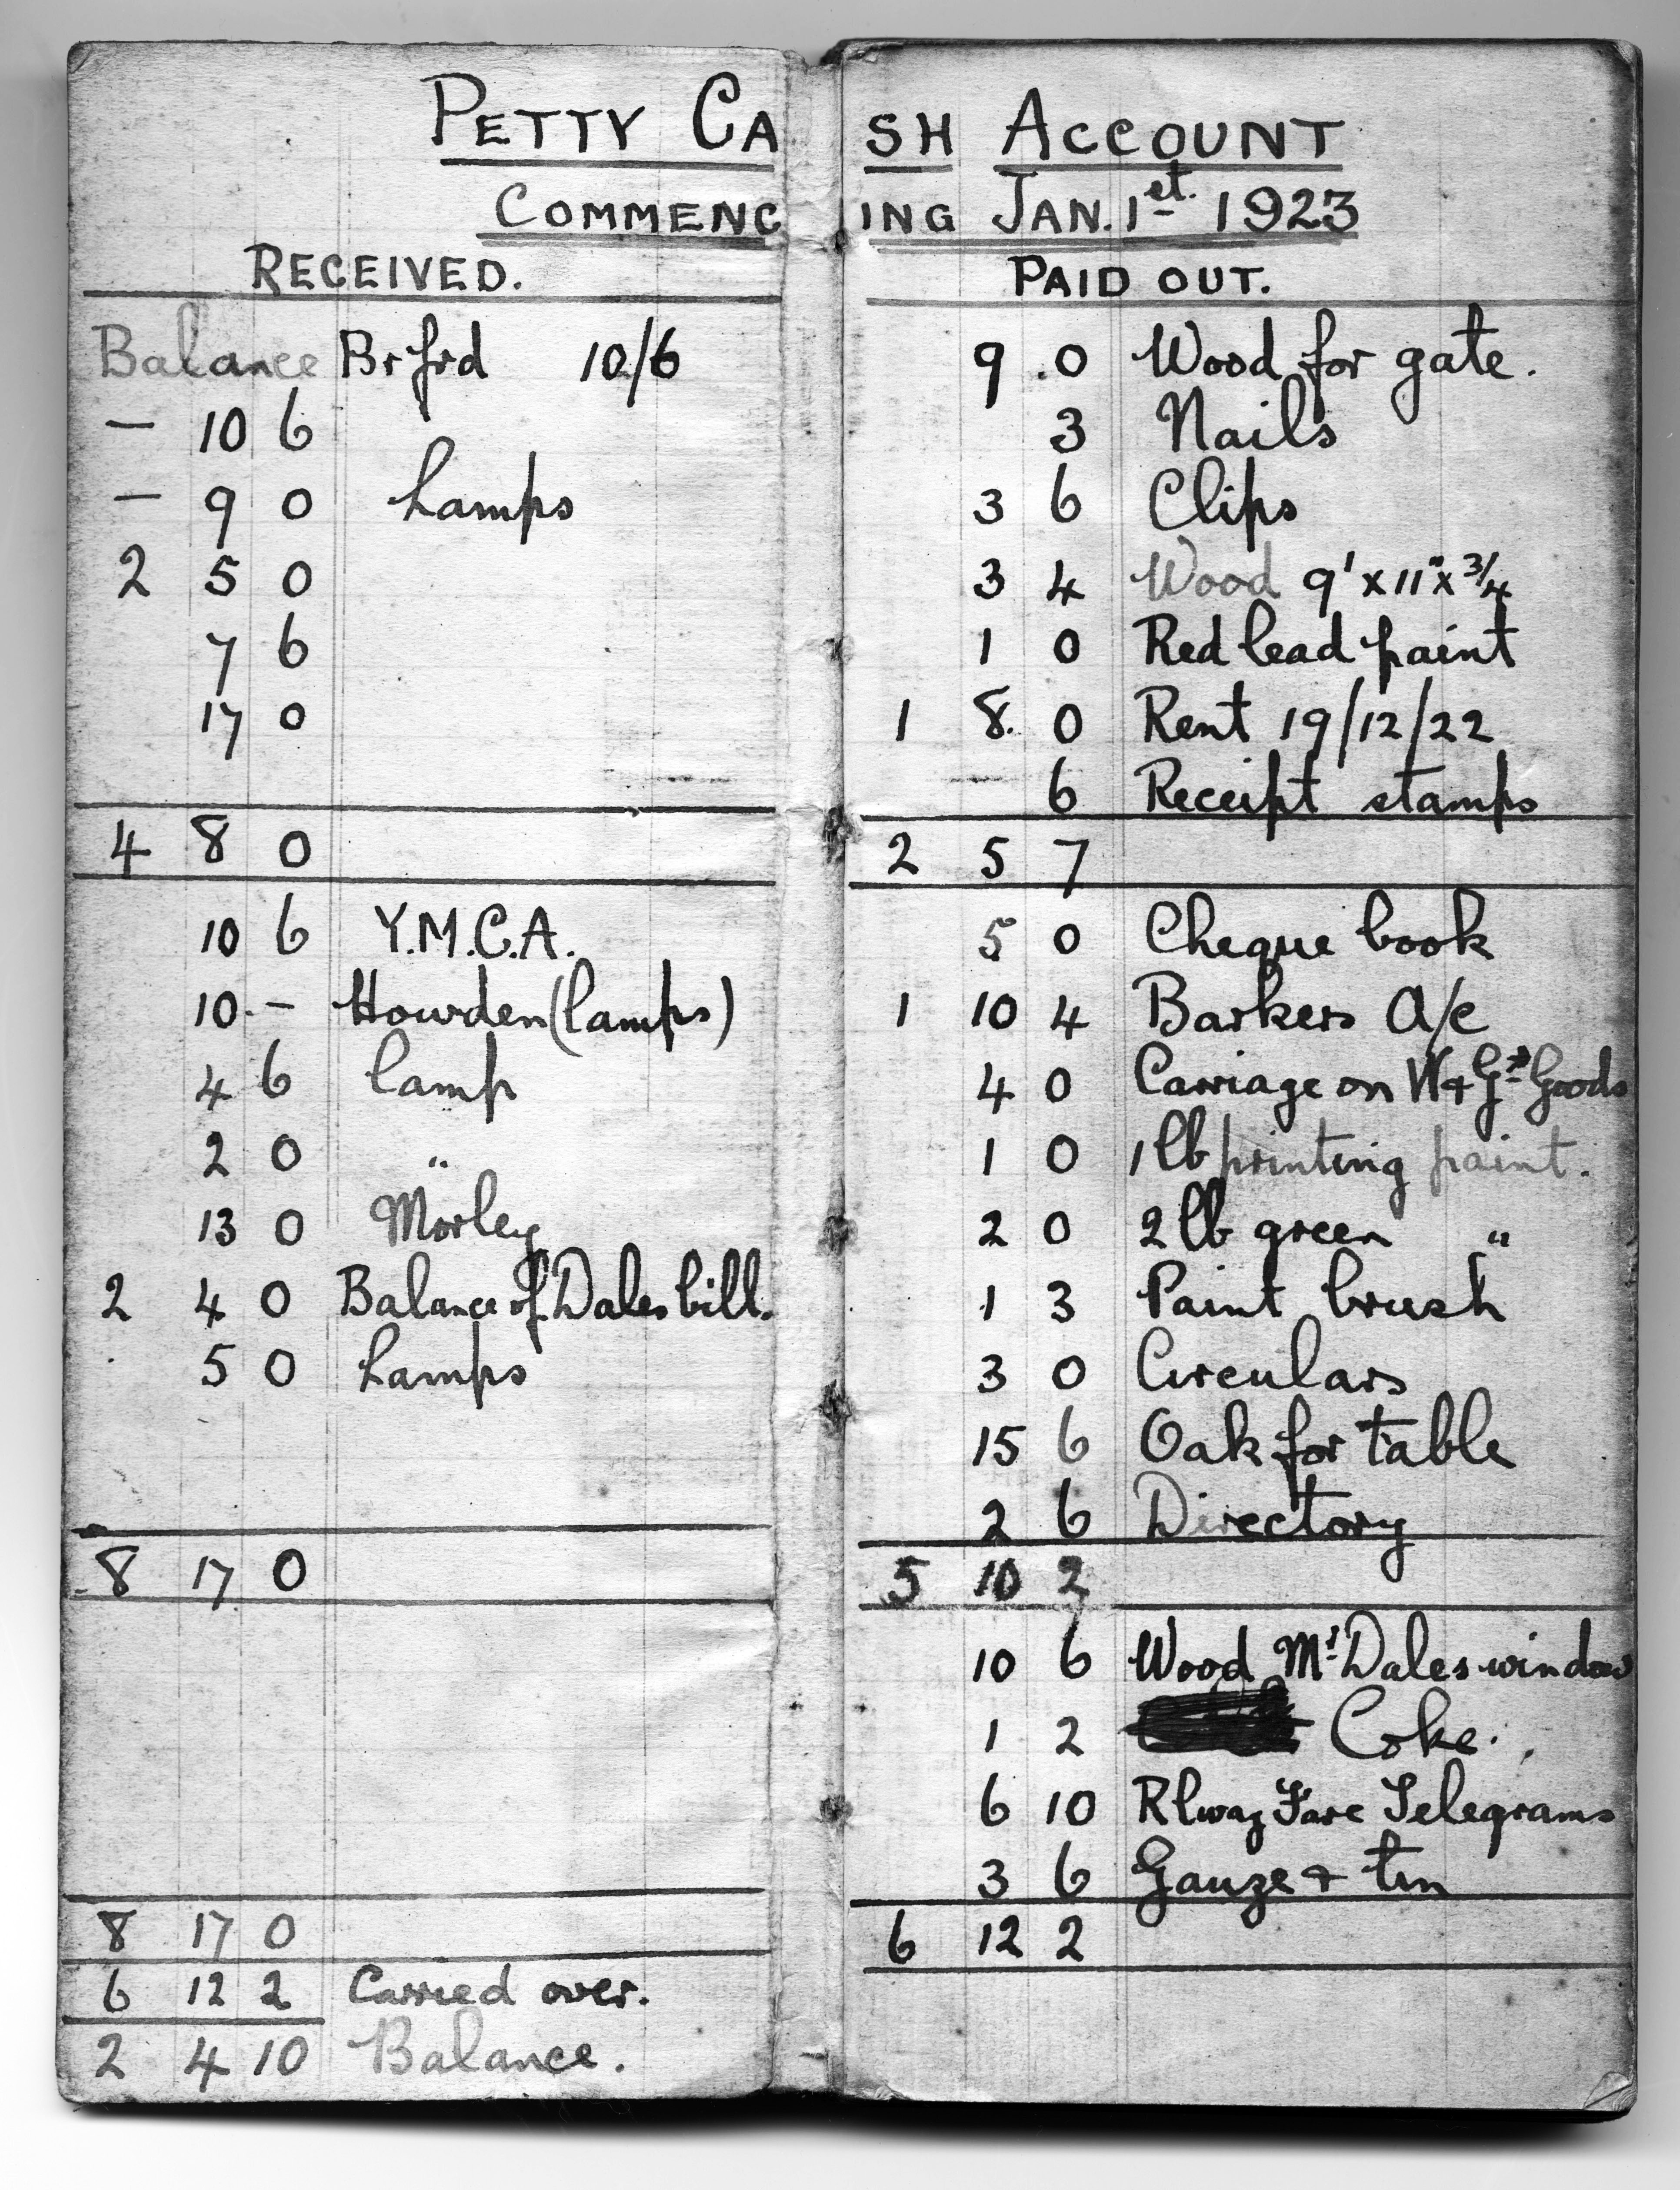 PETTY CASH ACCOUNT
COMMENCING JAN. 1st. 1923
RECEIVED.
Balance Br frd 10/6
— 10 6
— 9 0 Lamps
2 5 0
7 6
17 0
4 8 0
10 6 Y.M.C.A.
10 - Howden (lamps)
4 6 lamp
2 0 "
13 0 Morley
2 4 0 Balance of Dales bill.
5 0 Lamps
8 17 0
8 17 0
6 12 2 Carried over.
2 4 10 Balance.
PAID OUT.
9 0 Wood for gate.
3 Nails
3 6 Clips
3 4 Wood 9' x 11" x 3/4
1 0 Red lead paint
1 8 0 Rent 19/12/22
6 Receipt stamps
2 5 7
5 0 Cheque book
1 10 4 Barkers A/c
4 0 Carriage on W & Gs Goods
1 0 1 lb printing paint.
2 0 2 lb green "
1 3 Paint brush
3 0 Circulars
15 6 Oak for table
2 6 Directory
5 10 2
10 6 Wood Mr Dales window
1 2 Coke.
6 10 Rlway Fare Telegrams
3 6 Gauze & tin
6 12 2